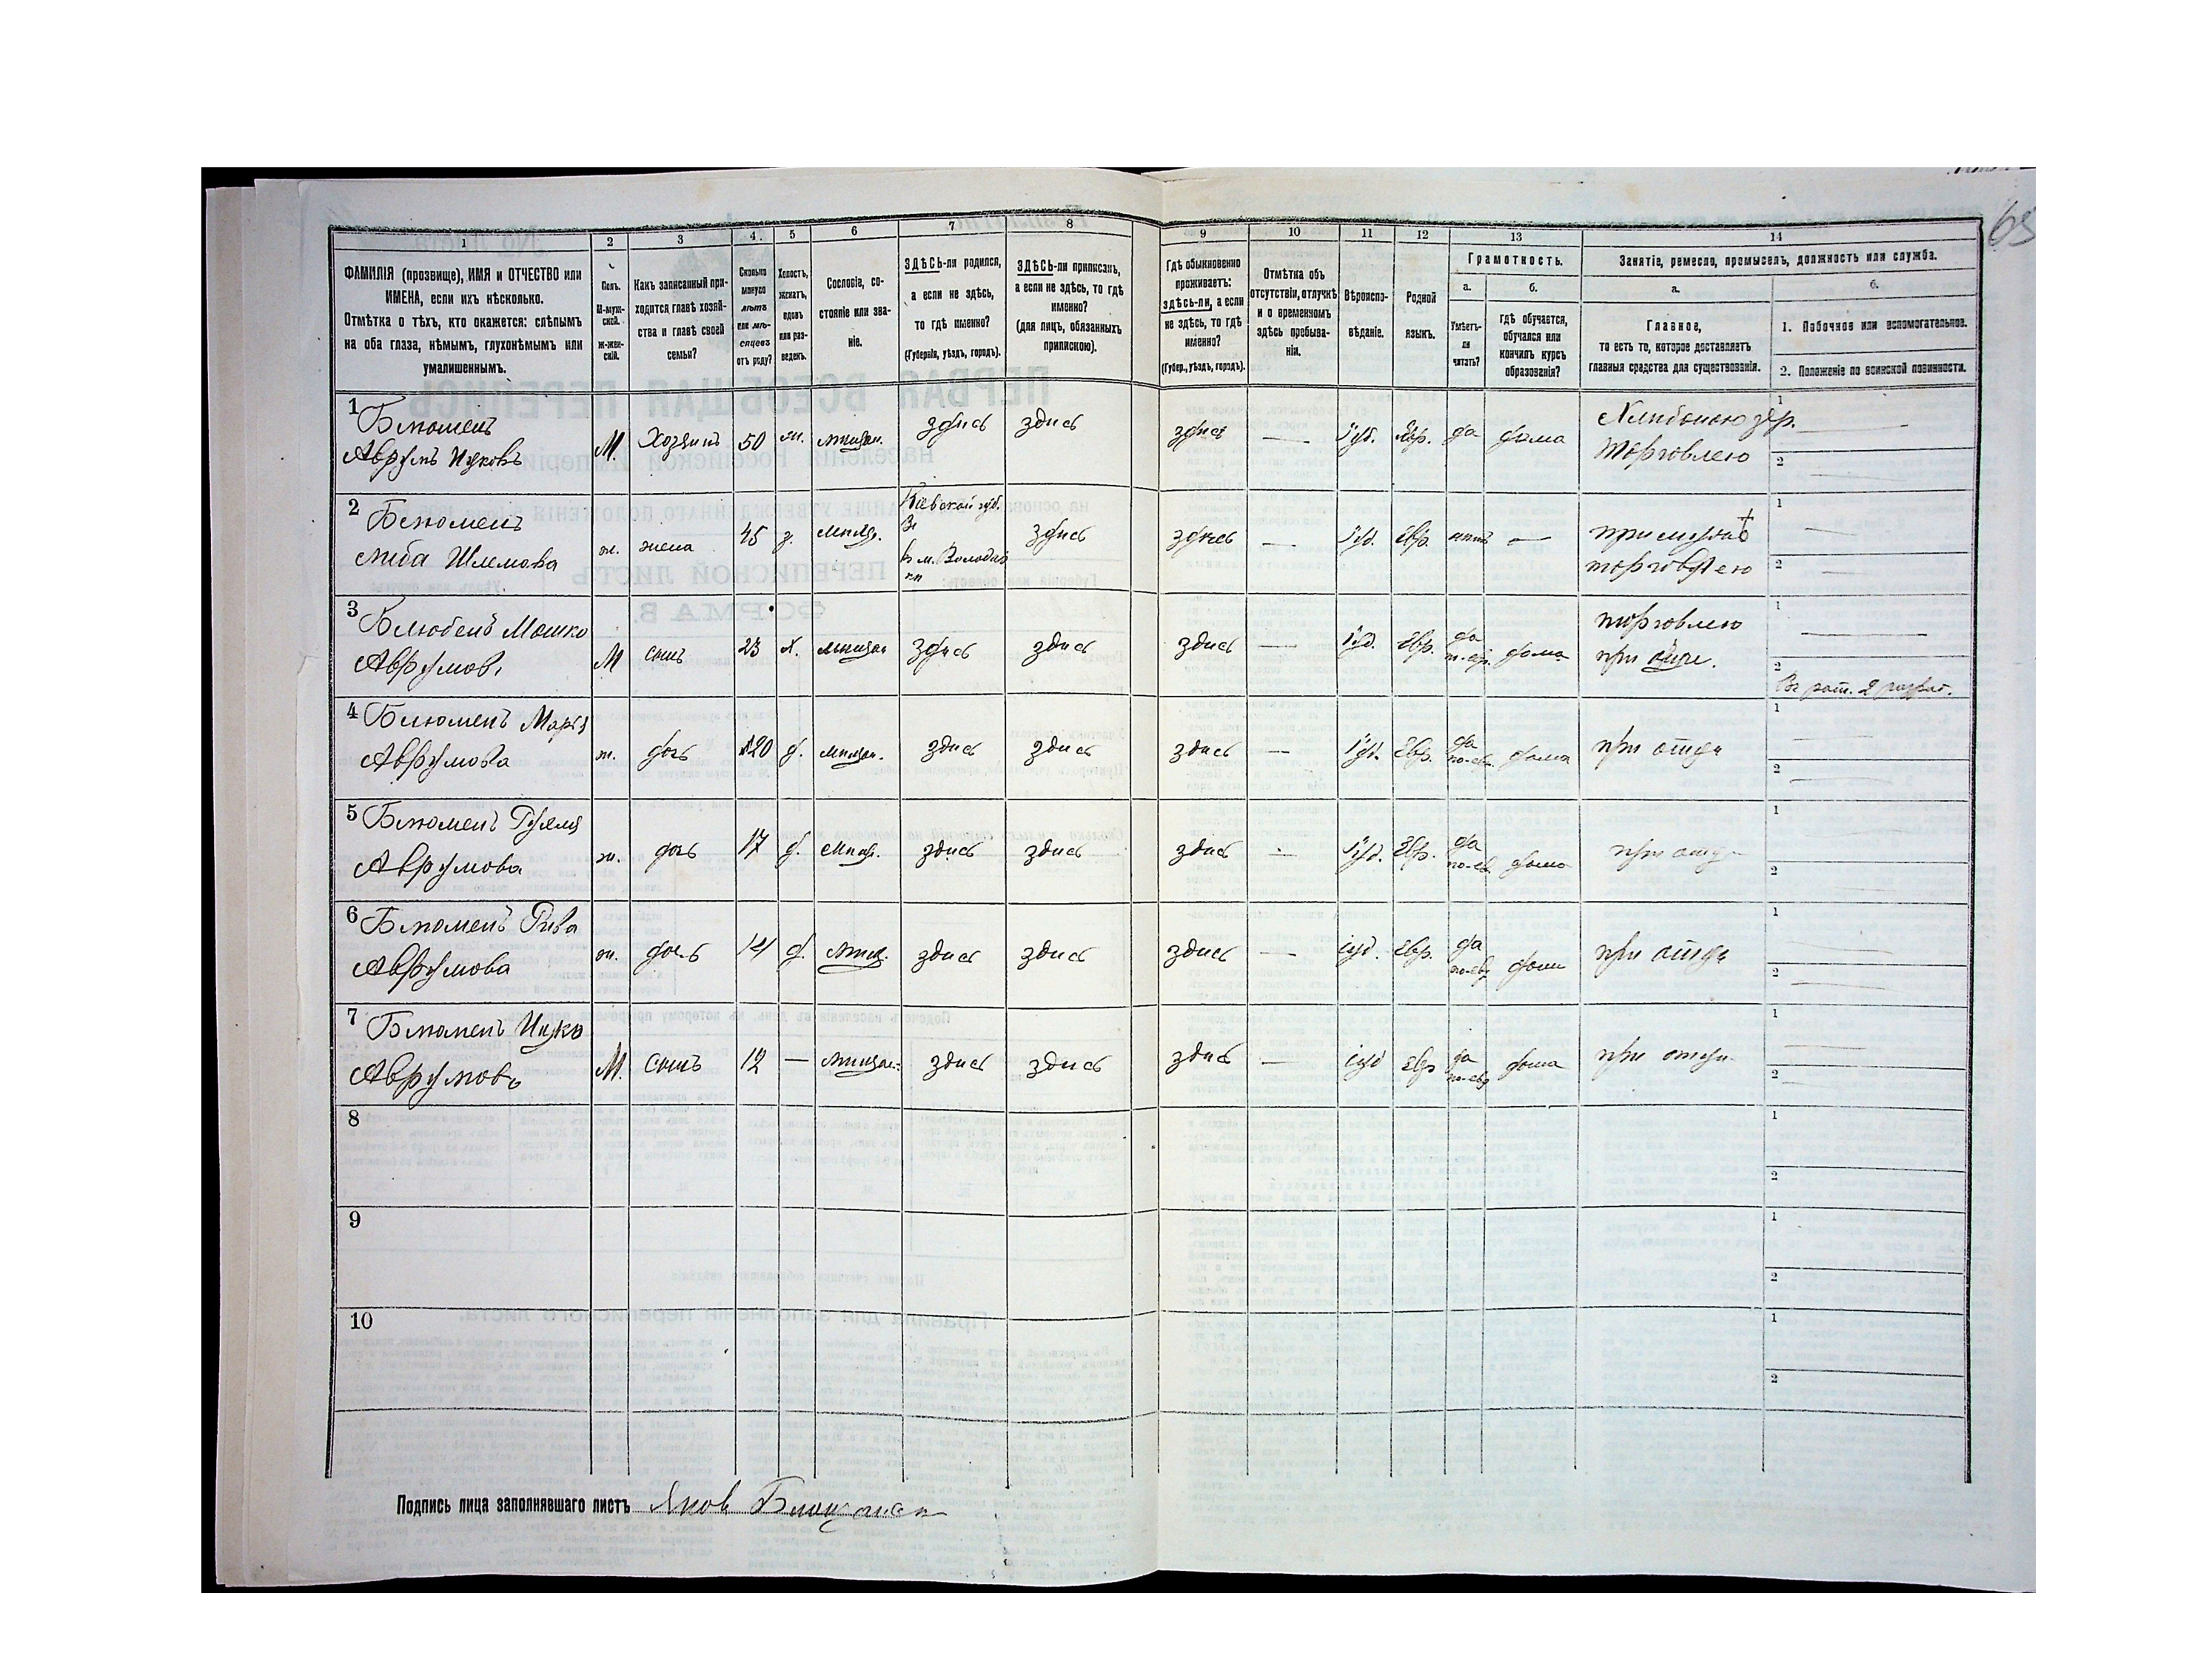 65
1 2 3 4. 5 6 7 8 9 10 11 12 13 14
ФАМИЛІЯ (прозвище), ИМЯ и ОТЧЕСТВО или
ИМЕНА, если ихъ нѣсколько.
Отмѣтка о тѣхъ, кто окажется: слѣпымъ
на оба глаза, нѣмымъ, глухонѣмымъ или
умалишеннымъ.
Полъ.
М-муж-
ской.
Ж-жен-
скій.
Какъ записанный при-
ходится главѣ хозяй-
ства и главѣ своей
семьи?
Сколько
минуло
лѣтъ
или мѣ-
сяцевъ
отъ роду?
Холостъ,
женатъ,
вдовъ
или раз-
веденъ.
Сословіе, со-
стояніе или зва-
ніе.
ЗДѢСЬ-ли родился,
а если не здѣсь,
то гдѣ именно?
(Губернія, уѣздъ, городъ).
ЗДѢСЬ-ли приписанъ,
а если не здѣсь, то гдѣ
именно?
(для лицъ, обязанныхъ
припискою).
Гдѣ обыкновенно
проживаетъ:
здѣсь-ли, а если
не здѣсь, то гдѣ
именно?
(Губер., уѣздъ, городъ).
Отмѣтка объ
отсутствіи, отлучкѣ
и о временномъ
здѣсь пребыва-
ніи.
Вѣроиспо-
вѣданіе.
Родной
языкъ.
Грамотность.
а.
Умѣетъ-
ли
читать?
б.
гдѣ обучается,
обучался или
кончилъ курсъ
образованія?
Занятіе, ремесло, промыселъ, должность или служба.
а.
Главное,
то есть то, которое доставляетъ
главныя средства для существованія.
б.
1. Побочное или вспомогательное.
2. Положеніе по воинской повинности.
1 Блюменъ
Аврумъ Ицковъ
М. Хозяинъ 50 ж. мѣщан. здѣсь здѣсь здѣсь — Іуд. Евр. да дома
торговлею
1
2
2 Блюменъ
Либа Шлемова
ж. жена 45 з. мѣщ. Кіевской губ.
здѣсь здѣсь — Іуд. Евр. нѣтъ —
при мужѣ
торговлею
1
2
3 Мошко
Аврумов.
М сынъ 23 х. мѣщан здѣсь здѣсь здѣсь — Іуд. Евр. да
дома
торговлею
при отцѣ.
1
2
2 разряд.
4 Блюменъ
Аврумова
ж. дочь 20 д. мѣщан. здѣсь здѣсь здѣсь — Іуд. Евр. да
по-евр. дома при отцѣ
1
2
5 Блюменъ
Аврумова
ж. дочь 17 д. мѣщ. здѣсь здѣсь здѣсь — Іуд. Евр. да
по-ев. дома при отц
1
2
6 Блюменъ Рива
Аврумова
ж. дочь 14 д. мѣщ. здѣсь здѣсь здѣсь — іуд. Евр. да
по-евр дома при отцѣ
1
2
7 Блюменъ Ицко
Аврумовъ
М. сынъ 12 — мѣщан. здѣсь здѣсь здѣсь — іуд Евр да
по-евр дома при отцѣ
1
2
8
1
2
9
1
2
10
1
2
Подпись лица заполнявшаго листъ